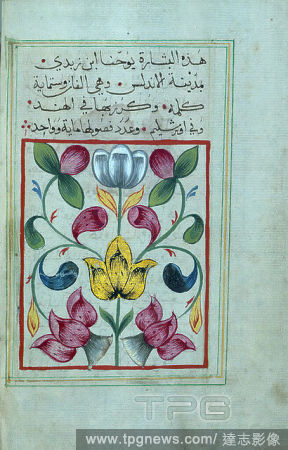 هذه البشارة يوحنا ابن زبدي
مدينة الاندلس وهي الفا وستماية
كلمة وكرز بها في الهند
وفي اورشليم وعدد فصولها ماية وواحد
TPG
www.tpgnews.com / 達志影像